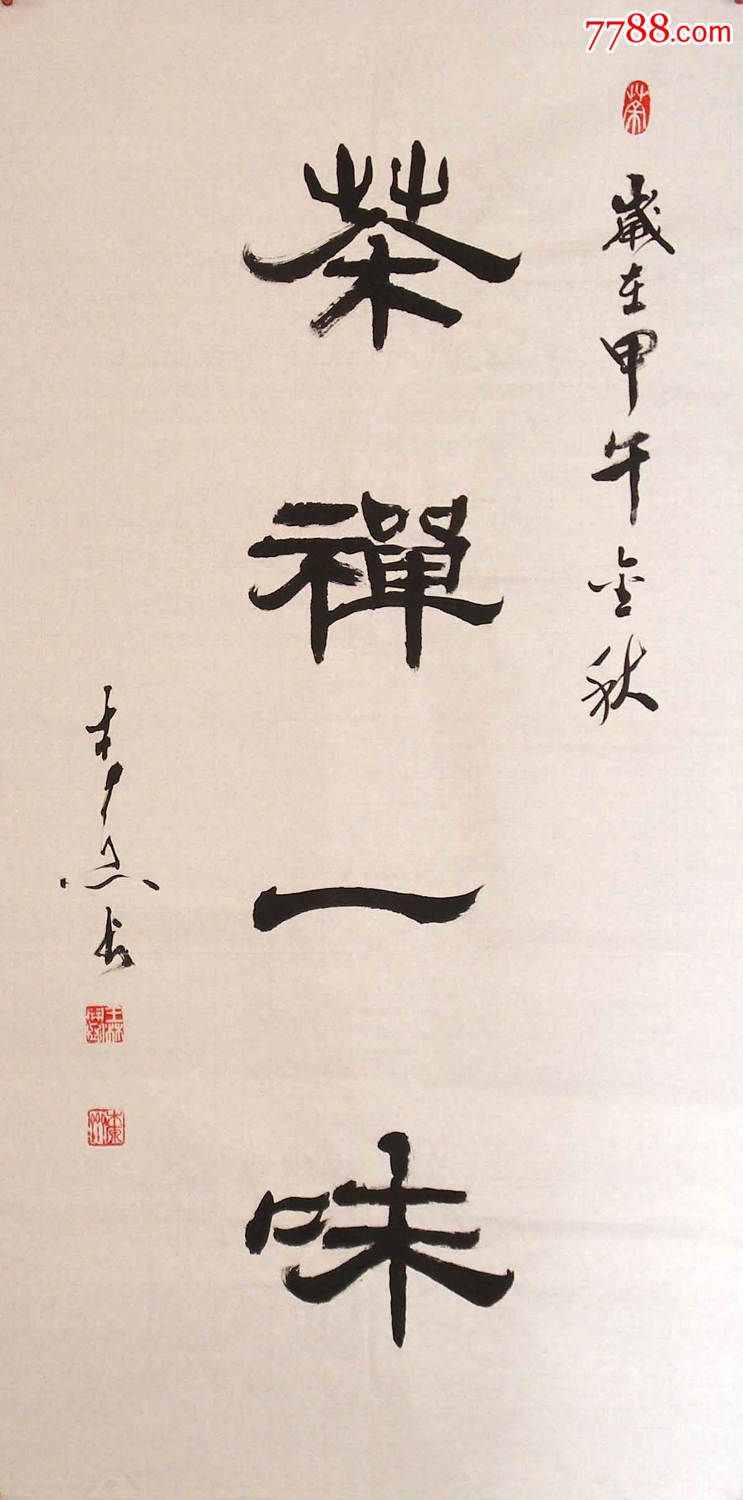 7788.com
歲在甲午金秋
茶禪一味